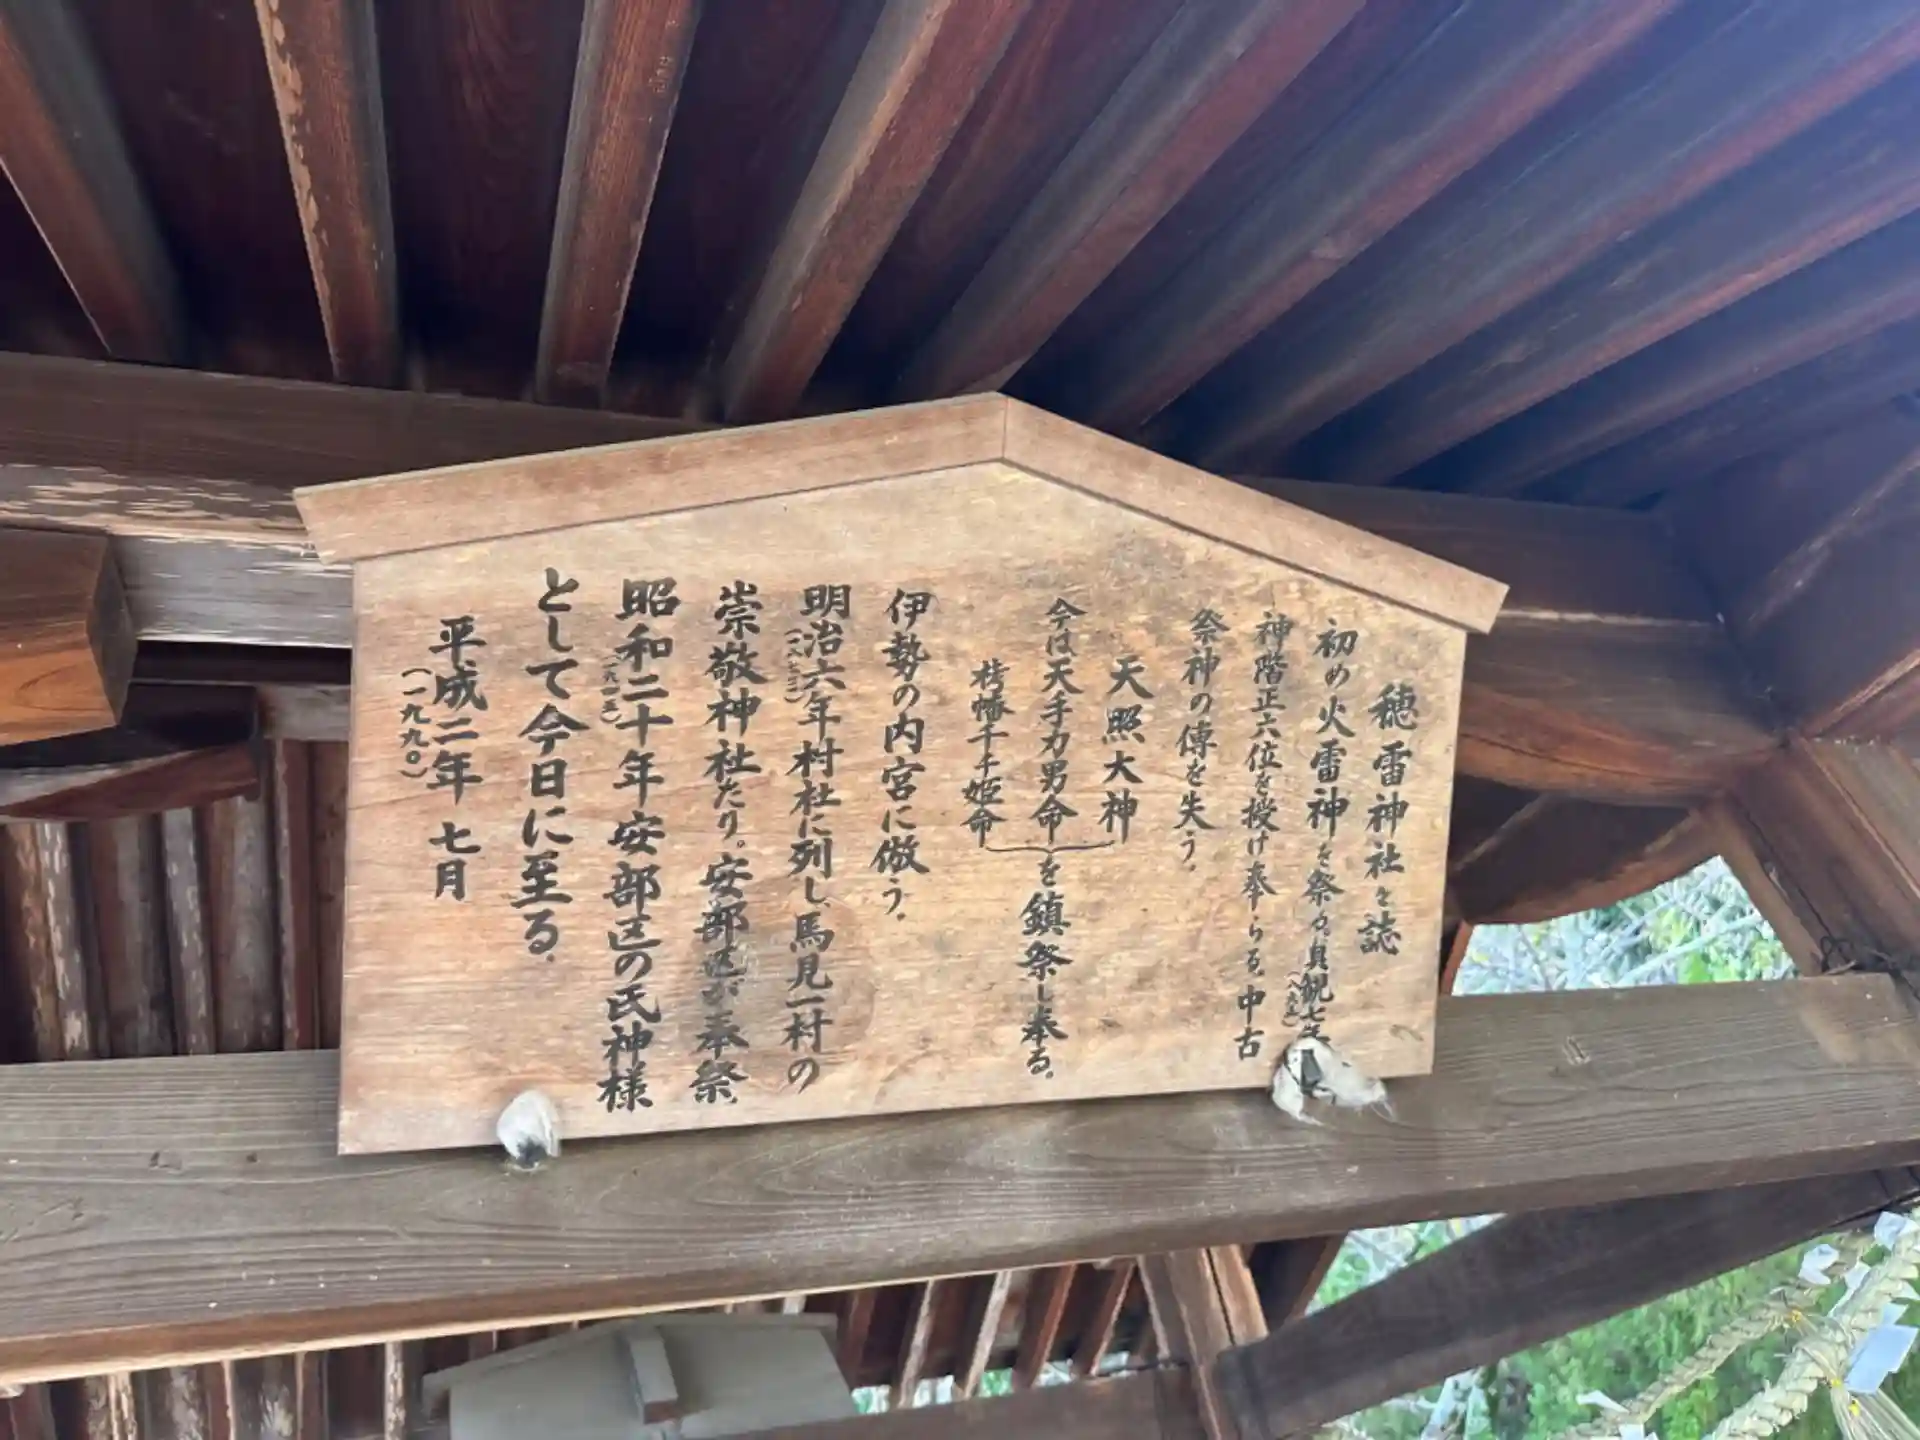 穂雷神社々誌
初め火雷神を祭る。貞観七年
(八六五)
神階正六位を授け奉らる。中古
祭神の傳を失う。
天照大神
今は天手力男命を鎮祭し奉る。
栲幡千千姫命
伊勢の内宮に倣う。
明治六年村社に列し、馬見一村の
(一八七三)
崇敬神社たり。安部区が奉祭、
昭和二十年安部区の氏神様
(一九四五)
として今日に至る。
平成二年 七月
(一九九〇)